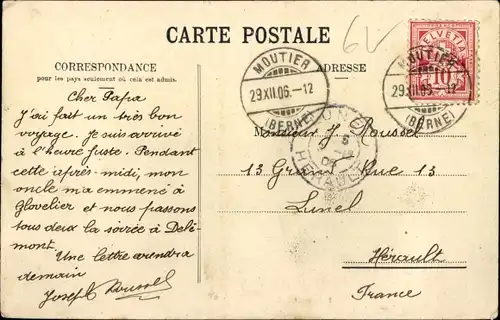 CARTE POSTALE
CORRESPONDANCE
pour les pays seulement où cela est admis.
ADRESSE
6V
MOUTIER
29.XII.06.-12
(BERNE)
HELVETIA
10
MOUTIER
29.XII.06.-12
(BERNE)
HERAULT
Cher Papa
J'ai fait un très bon
voyage. Je suis arrivé
à l'heure juste. Pendant
cette après-midi, mon
oncle m'a emmené à
Glovelier et nous passons
tous deux la soirée à Delé-
mont.
Une lettre viendra
demain
Joseph Roussel
Monsieur J. Roussel
13 Grand Rue 13
Lunel
Hérault
France